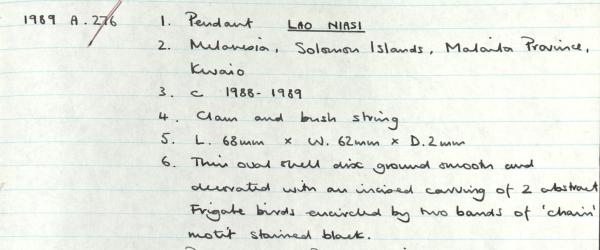 1989 A. 276 1. Pendant LAO NIASI
2. Melanesia, Solomon Islands, Malaita Province,
Kwaio
3. c 1988-1989
4. Clam and bush string
5. L. 68mm x W. 62mm x D. 2mm
6. Thin oval shell disc ground smooth and
decorated with an incised carving of 2 abstract
Frigate birds encircled by two bands of 'chain'
motif stained black.